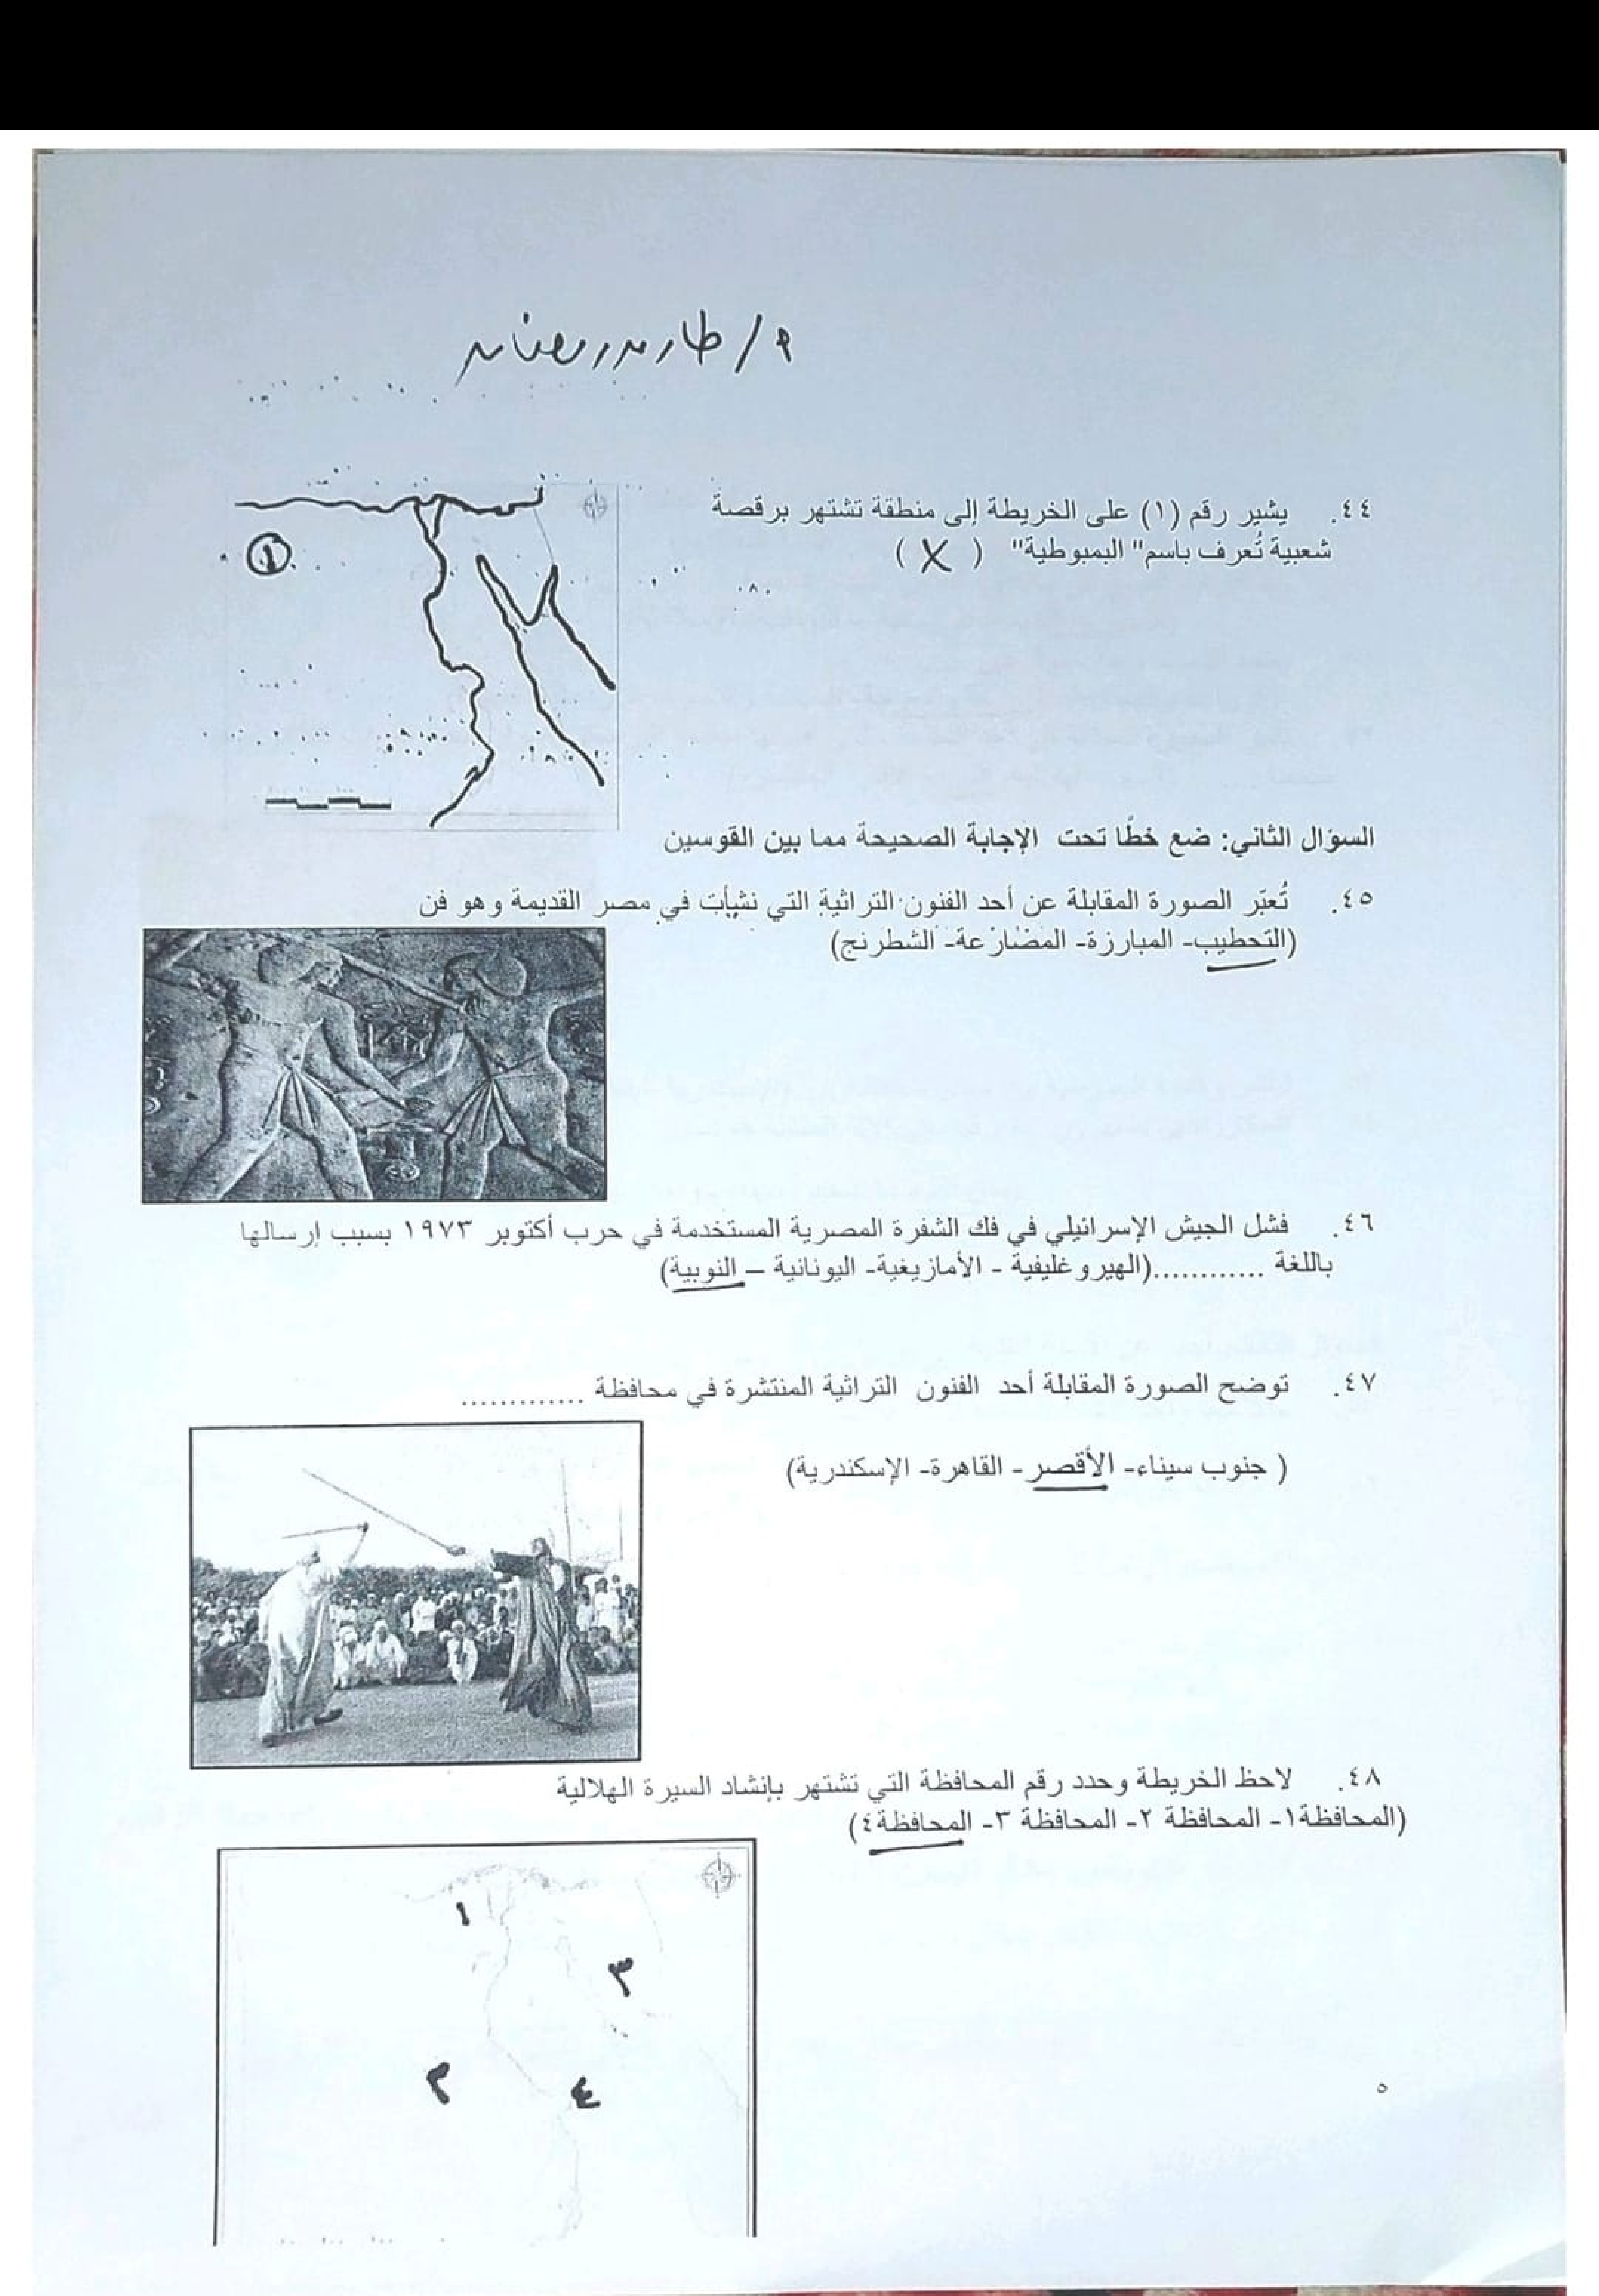 م/ طارق رمضان
٤٤. يشير رقم (١) على الخريطة إلى منطقة تشتهر برقصة
شعبية تُعرف باسم" البمبوطية" ( X )
١
السؤال الثاني: ضع خطًا تحت الإجابة الصحيحة مما بين القوسين
٤٥. تُعبّر الصورة المقابلة عن أحد الفنون التراثية التي نشأت في مصر القديمة وهو فن
(التحطيب- المبارزة- المصارعة- الشطرنج)
٤٦. فشل الجيش الإسرائيلي في فك الشفرة المصرية المستخدمة في حرب أكتوبر ١٩٧٣ بسبب إرسالها
باللغة ............(الهيروغليفية - الأمازيغية- اليونانية – النوبية)
٤٧. توضح الصورة المقابلة أحد الفنون التراثية المنتشرة في محافظة .............
( جنوب سيناء- الأقصر- القاهرة- الإسكندرية)
٤٨. لاحظ الخريطة وحدد رقم المحافظة التي تشتهر بإنشاد السيرة الهلالية
(المحافظة١- المحافظة ٢- المحافظة ٣- المحافظة٤)
١
٣
٢
٤
٥